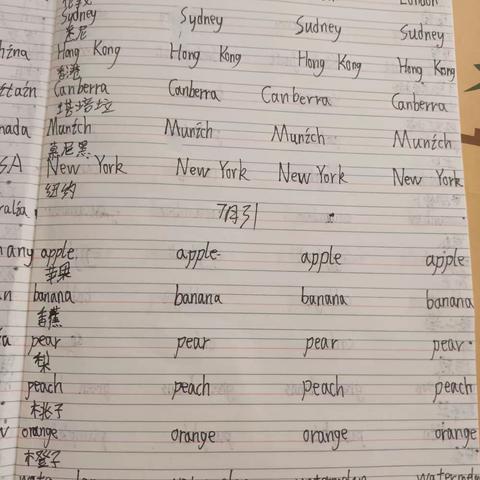 London
Sydney Sydney Sudney Sudney
悉尼
hina Hong Kong Hong Kong Hong Kong Hong Kong
香港
ttain Canberra Canberra Canberra Canberra
堪培垃
nada Munich Munich Munich Munich
慕尼黑
SA New York New York New York New York
纽约
ralia 7月31
many apple apple apple apple
苹果
banana banana banana banana
香蕉
pear pear pear pear
梨
peach peach peach peach
桃子
orange orange orange orange
橙子